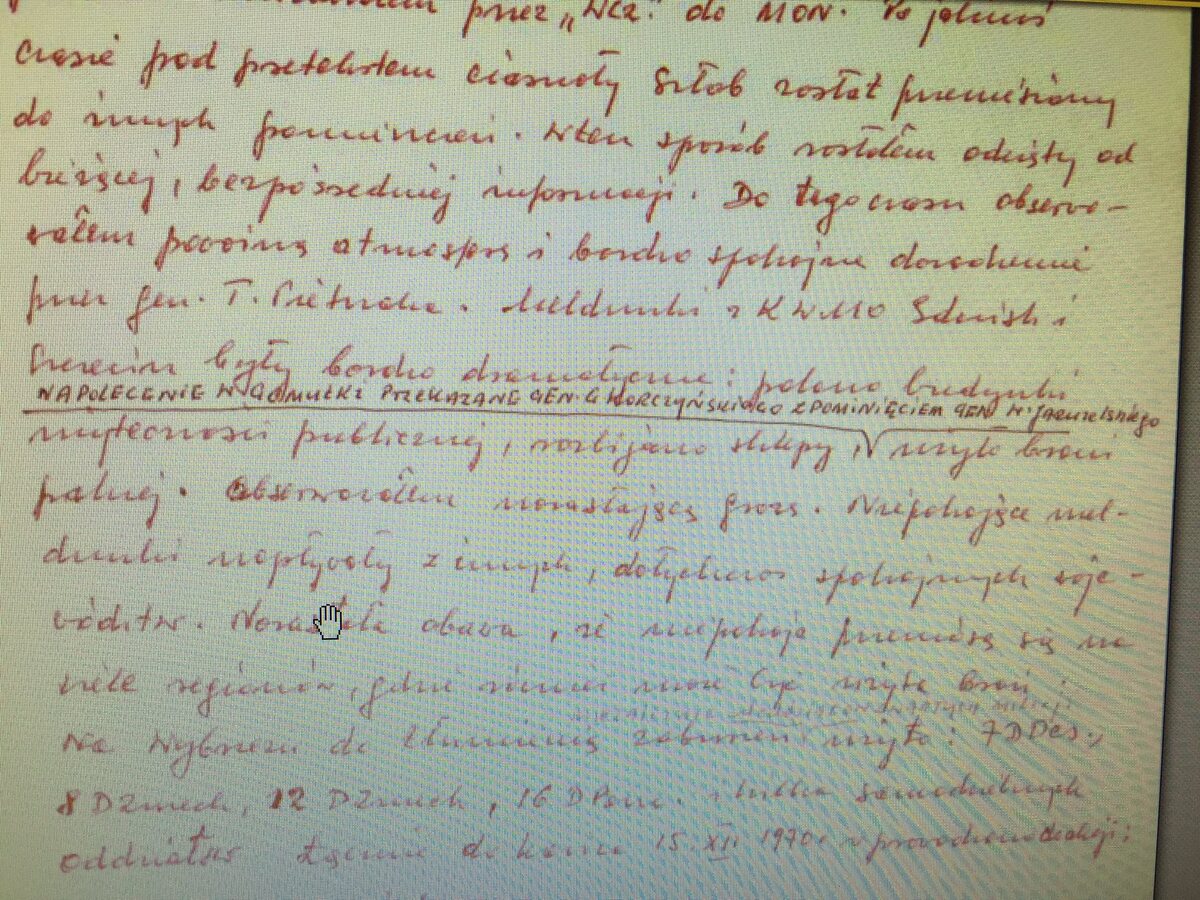 przez „WCz." do MON. Po jakimś
czasie pod pretekstem ciasnoty Sztab został przeniesiony
do innych pomieszczeń. W ten sposób zostałem odcięty od
bieżącej, bezpośredniej informacji. Do tego czasu obserwo-
wałem poważną atmosferę i bardzo spokojne dowodzenie
przez gen. T. Pietrzaka. Meldunki z KWMO Gdańsk i
Szczecin były bardzo dramatyczne: palono budynki
NA POLECENIE W. GOMUŁKI PRZEKAZANE GEN. G. KORCZYŃSKIEGO Z POMINIĘCIEM GEN. W. JARUZELSKIEGO
użyteczności publicznej, rozbijano sklepy, użyto broni
palnej. Obserwowałem narastającą grozę. Niepokojące mel-
dunki napływały z innych, dotychczas spokojnych woje-
wództw. Narastała obawa, że niepokoje przeniosą się na
wiele regionów, gdzie również może być użyta broń.
Na Wybrzeżu do tłumienia zaburzeń użyto: 7 DDes.,
8 DZmech, 12 DZmech, 16 DPanc. i kilka samodzielnych
oddziałów. Łącznie do końca 15.XII.1970r. wprowadzono do akcji: